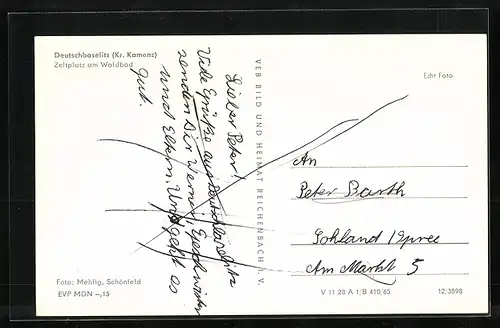 Deutschbaselitz (Kr. Kamenz)
Zeltplatz am Waldbad
Lieber Peter!
Viele Grüße aus Deutschbaselitz
senden Dir Werner, Geschwister
und Eltern. Uns geht es
gut.
VEB BILD UND HEIMAT REICHENBACH i. V.
Echt Foto
An
Peter Barth
Sohland /Spree
Am Markt 5
Foto: Mehlig, Schönfeld
EVP MDN -,15
V 11 28 A 1/B 410/65
12/3898